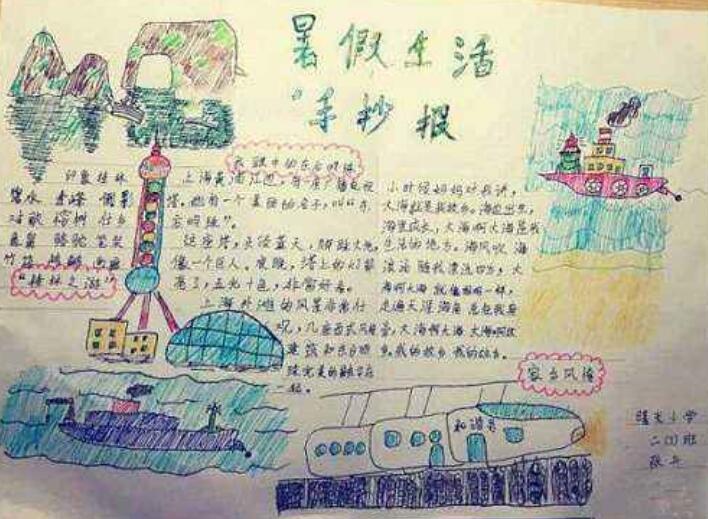 暑假生活
手抄报
我眼中的东方明珠
印象桂林
碧水 青峰 倒影
对歌 榕树 壮乡
象鼻 骆驼 笔架
竹筏
"桂林之游"
上海黄浦江边,有座广播电视
塔。她有一个美丽的名字,叫"东
方明珠"。
这座塔,头顶蓝天,脚踏大地,
像一个巨人。夜晚,塔上的灯都
亮了,五光十色,非常好看。
上海外滩的风景非常壮
观,几座西式风
建筑和东方明
珠完美的融合在
一起。
小时候妈妈对我讲,
大海就是我故乡。海边出生,
海里成长,大海啊大海是我
生活的地方。海风吹 海
浪涌 随我漂流四方,大
海啊大海 就像妈妈一样,
走遍天涯海角 总在我身
旁。大海啊大海 大海啊故
乡,我的故乡 我的故乡。
家乡风情
和谐号
曙光小学
二(1)班